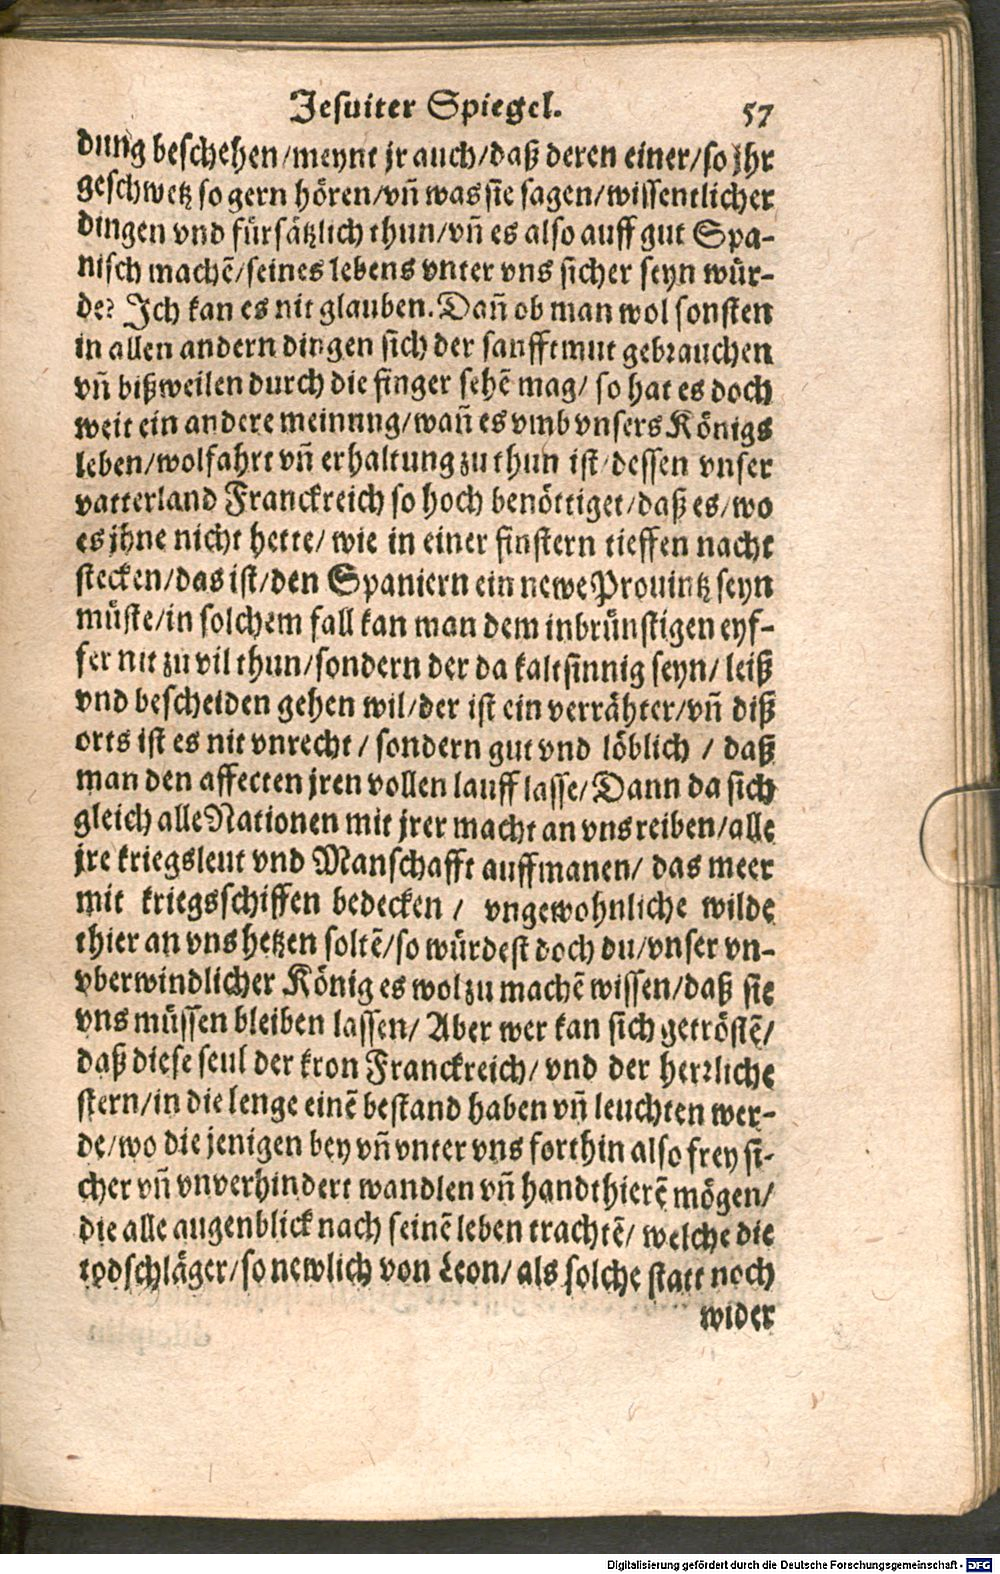 Jesuiter Spiegel. 57
dung beschehen/meynt jr auch/daß deren einer/so jhr
geschwetz so gern hören/vñ was sie sagen/wissentlicher
dingen vnd fürsätzlich thun/vñ es also auff gut Spa-
nisch machẽ/seines lebens vnter vns sicher seyn wür-
de? Ich kan es nit glauben. Dañ ob man wol sonsten
in allen andern dingen sich der sanfftmut gebrauchen
vñ bißweilen durch die finger sehẽ mag/ so hat es doch
weit ein andere meinung/wañ es vmb vnsers Königs
leben/wolfahrt vñ erhaltung zu thun ist/dessen vnser
vatterland Franckreich so hoch benöttiget/daß es/wo
es jhne nicht hette/ wie in einer finstern tieffen nacht
stecken/das ist/den Spaniern ein newe Prouintz seyn
müste/in solchem fall kan man dem inbrünstigen eyf-
fer nit zu vil thun/sondern der da kaltsinnig seyn/ leiß
vnd bescheiden gehen wil/der ist ein verrähter/vñ diß
orts ist es nit vnrecht / sondern gut vnd löblich / daß
man den affecten jren vollen lauff lasse/ Dann da sich
gleich alle Nationen mit jrer macht an vns reiben/alle
jre kriegsleut vnd Manschafft auffmanen/ das meer
mit kriegsschiffen bedecken / vngewohnliche wilde
thier an vns hetzen soltẽ/so würdest doch du/vnser vn-
vberwindlicher König es wol zu machẽ wissen/daß sie
vns müssen bleiben lassen/ Aber wer kan sich getröstẽ/
daß diese seul der kron Franckreich/ vnd der herrliche
stern/in die lenge einẽ bestand haben vñ leuchten wer-
de/wo die jenigen bey vñ vnter vns forthin also frey si-
cher vñ vnverhindert wandlen vñ handthierẽ mögen/
die alle augenblick nach seinẽ leben trachtẽ/ welche die
todschläger/so newlich von Leon/ als solche statt noch
wider
Digitalisierung gefördert durch die Deutsche Forschungsgemeinschaft - DFG